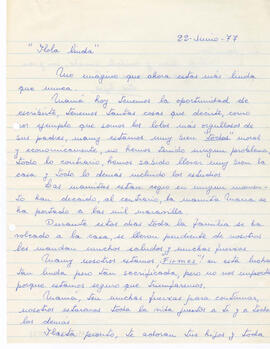 22-Junio-77
"Hola linda"
Me imagino que ahora estás más linda
que nunca.
Mamá hoy tenemos la oportunidad de
escribirte, tenemos tantas cosas que decirte, como
por ejemplo que somos los lolos más orgullosos de
sus padres, mamy estamos muy bien "todos" moral
y economicamente, no hemos tenido ningún problema
todo lo contrario, hemos sabido llevar muy bien la
casa y todo lo demás incluido los estudios
Las mamitas están regio en ningun momen-
to han decaido, al contrario, la mamita Maria se
ha portado a las mil maravilla.
Durante estos dias toda la familia se ha
volcado a la casa, se llevan pendiente de nosotros
les mandan muchos saludos y muchas fuerzas
Mamy nosotros estamos "Firmes" en esta lucha
tan linda pero tan sacrificada, pero no nos importa
porque estamos seguro que triunfaremos.
Mamá, ten muchas fuerzas para continuar,
nosotros estaremos toda la vida junto a ti y a todos
los demás
Hasta pronto, te adoran tus hijos y toda